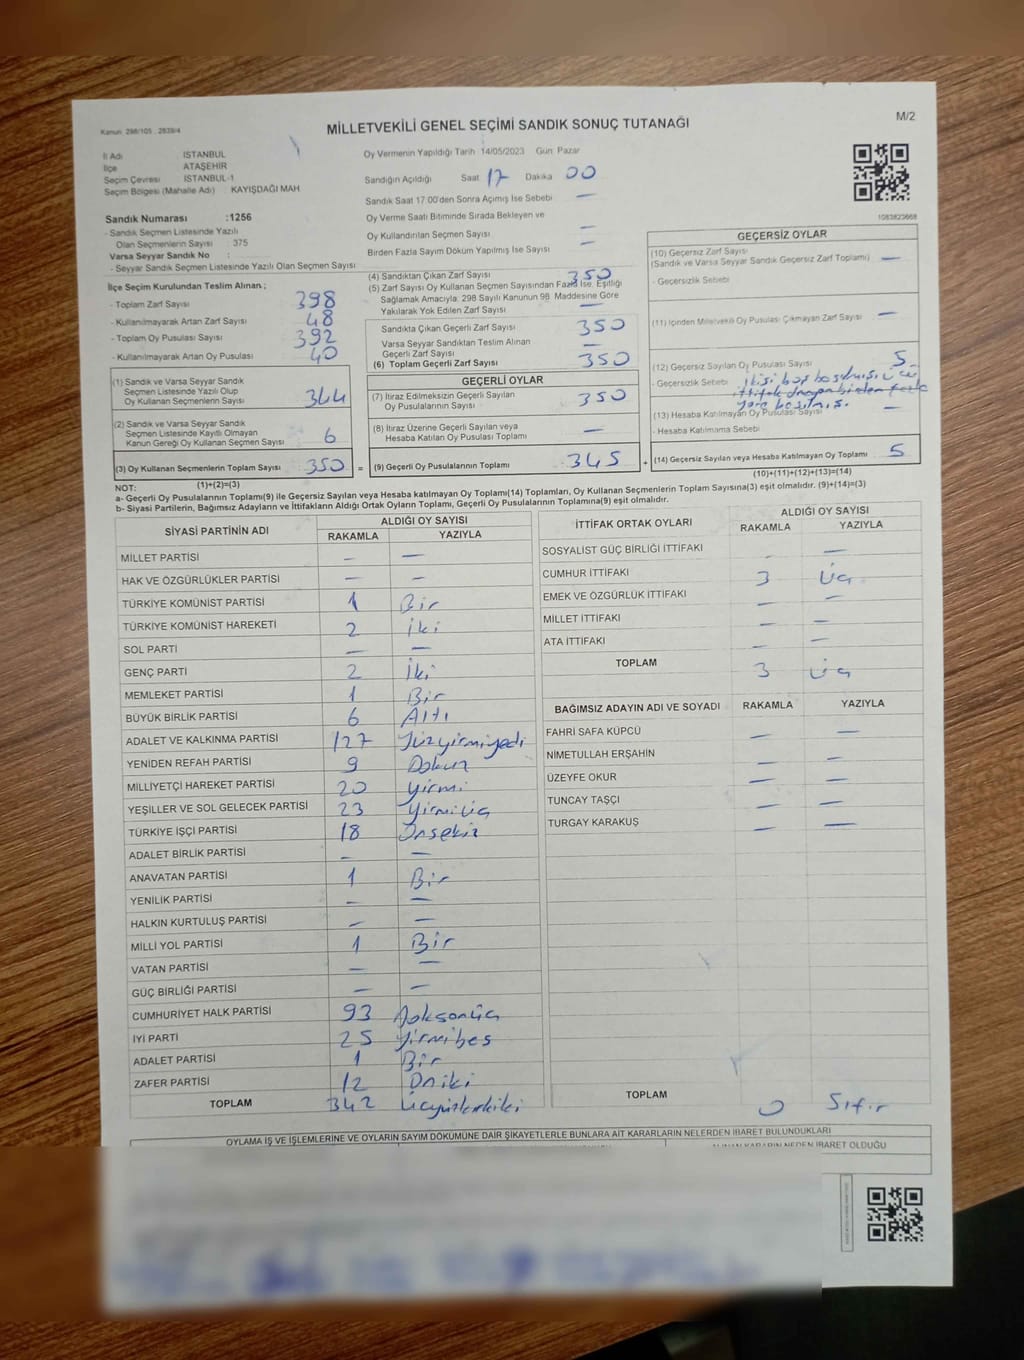 Kanun 298/105 , 2839/4
M/2
MİLLETVEKİLİ GENEL SEÇİMİ SANDIK SONUÇ TUTANAĞI
İl Adı : İSTANBUL
İlçe : ATAŞEHİR
Seçim Çevresi : İSTANBUL-1
Seçim Bölgesi (Mahalle Adı) : KAYIŞDAĞI MAH
Sandık Numarası : 1256
- Sandık Seçmen Listesinde Yazılı
Olan Seçmenlerin Sayısı : 375
Varsa Seyyar Sandık No :
- Seyyar Sandık Seçmen Listesinde Yazılı Olan Seçmen Sayısı
İlçe Seçim Kurulundan Teslim Alınan ;
- Toplam Zarf Sayısı 398
- Kullanılmayarak Artan Zarf Sayısı 48
- Toplam Oy Pusulası Sayısı 392
- Kullanılmayarak Artan Oy Pusulası 40
(1) Sandık ve Varsa Seyyar Sandık
Seçmen Listesinde Yazılı Olup
Oy Kullanan Seçmenlerin Sayısı 344
(2) Sandık ve Varsa Seyyar Sandık
Seçmen Listesinde Kayıtlı Olmayan
Kanun Gereği Oy Kullanan Seçmen Sayısı 6
(3) Oy Kullanan Seçmenlerin Toplam Sayısı 350 =
(1)+(2)=(3)
Oy Vermenin Yapıldığı Tarih 14/05/2023 Gün: Pazar
Sandığın Açıldığı Saat 17 Dakika 00
Sandık Saat 17.00'den Sonra Açımış İse Sebebi —
Oy Verme Saati Bitiminde Sırada Bekleyen ve
Oy Kullandırılan Seçmen Sayısı —
Birden Fazla Sayım Döküm Yapılmış İse Sayısı —
(4) Sandıktan Çıkan Zarf Sayısı 350
(5) Zarf Sayısı Oy Kullanan Seçmen Sayısından Fazla İse, Eşitliği
Sağlamak Amacıyla, 298 Sayılı Kanunun 98. Maddesine Göre
Yakılarak Yok Edilen Zarf Sayısı —
Sandıkta Çıkan Geçerli Zarf Sayısı 350
Varsa Seyyar Sandıktan Teslim Alınan
Geçerli Zarf Sayısı —
(6) Toplam Geçerli Zarf Sayısı 350
GEÇERLİ OYLAR
(7) İtiraz Edilmeksizin Geçerli Sayılan
Oy Pusulalarının Sayısı 350
(8) İtiraz Üzerine Geçerli Sayılan veya
Hesaba Katılan Oy Pusulası Toplamı —
(9) Geçerli Oy Pusulalarının Toplamı 345 +
1083823668
GEÇERSİZ OYLAR
(10) Geçersiz Zarf Sayısı
(Sandık ve Varsa Seyyar Sandık Geçersiz Zarf Toplamı) —
- Geçersizlik Sebebi
(11) İçinden Milletvekili Oy Pusulası Çıkmayan Zarf Sayısı —
(12) Geçersiz Sayılan Oy Pusulası Sayısı 5
- Geçersizlik Sebebi İkisi boş basılmış. Üçü
ittifak birden fazla
yere basılmış.
(13) Hesaba Katılmayan Oy Pusulası Sayısı —
- Hesaba Katılmama Sebebi
(14) Geçersiz Sayılan veya Hesaba Katılmayan Oy Toplamı 5
(10)+(11)+(12)+(13)=(14)
NOT:
a- Geçerli Oy Pusulalarının Toplamı(9) ile Geçersiz Sayılan veya Hesaba katılmayan Oy Toplamı(14) Toplamları, Oy Kullanan Seçmenlerin Toplam Sayısına(3) eşit olmalıdır. (9)+(14)=(3)
b- Siyasi Partilerin, Bağımsız Adayların ve İttifakların Aldığı Ortak Oyların Toplamı, Geçerli Oy Pusulalarının Toplamına(9) eşit olmalıdır.
SİYASİ PARTİNİN ADI ALDIĞI OY SAYISI
RAKAMLA YAZIYLA
MİLLET PARTİSİ — —
HAK VE ÖZGÜRLÜKLER PARTİSİ — —
TÜRKİYE KOMÜNİST PARTİSİ 1 Bir
TÜRKİYE KOMÜNİST HAREKETİ 2 İki
SOL PARTİ — —
GENÇ PARTİ 2 İki
MEMLEKET PARTİSİ 1 Bir
BÜYÜK BİRLİK PARTİSİ 6 Altı
ADALET VE KALKINMA PARTİSİ 127 Yüzyirmiyedi
YENİDEN REFAH PARTİSİ 9 Dokuz
MİLLİYETÇİ HAREKET PARTİSİ 20 Yirmi
YEŞİLLER VE SOL GELECEK PARTİSİ 23 Yirmiüç
TÜRKİYE İŞÇİ PARTİSİ 18 Onsekiz
ADALET BİRLİK PARTİSİ — —
ANAVATAN PARTİSİ 1 Bir
YENİLİK PARTİSİ — —
HALKIN KURTULUŞ PARTİSİ — —
MİLLİ YOL PARTİSİ 1 Bir
VATAN PARTİSİ — —
GÜÇ BİRLİĞİ PARTİSİ — —
CUMHURİYET HALK PARTİSİ 93 Doksanüç
İYİ PARTİ 25 Yirmibeş
ADALET PARTİSİ 1 Bir
ZAFER PARTİSİ 12 Oniki
TOPLAM 342 Üçyüzkırkiki
İTTİFAK ORTAK OYLARI ALDIĞI OY SAYISI
RAKAMLA YAZIYLA
SOSYALİST GÜÇ BİRLİĞİ İTTİFAKI — —
CUMHUR İTTİFAKI 3 Üç
EMEK VE ÖZGÜRLÜK İTTİFAKI — —
MİLLET İTTİFAKI — —
ATA İTTİFAKI — —
TOPLAM 3 Üç
BAĞIMSIZ ADAYIN ADI VE SOYADI RAKAMLA YAZIYLA
FAHRİ SAFA KÜPCÜ — —
NİMETULLAH ERŞAHİN — —
ÜZEYFE OKUR — —
TUNCAY TAŞÇI — —
TURGAY KARAKUŞ — —
TOPLAM 0 Sıfır
OYLAMA İŞ VE İŞLEMLERİNE VE OYLARIN SAYIM DÖKÜMÜNE DAİR ŞİKAYETLERLE BUNLARA AİT KARARLARIN NELERDEN İBARET BULUNDUKLARI
ALINAN KARARIN NEDEN İBARET OLDUĞU